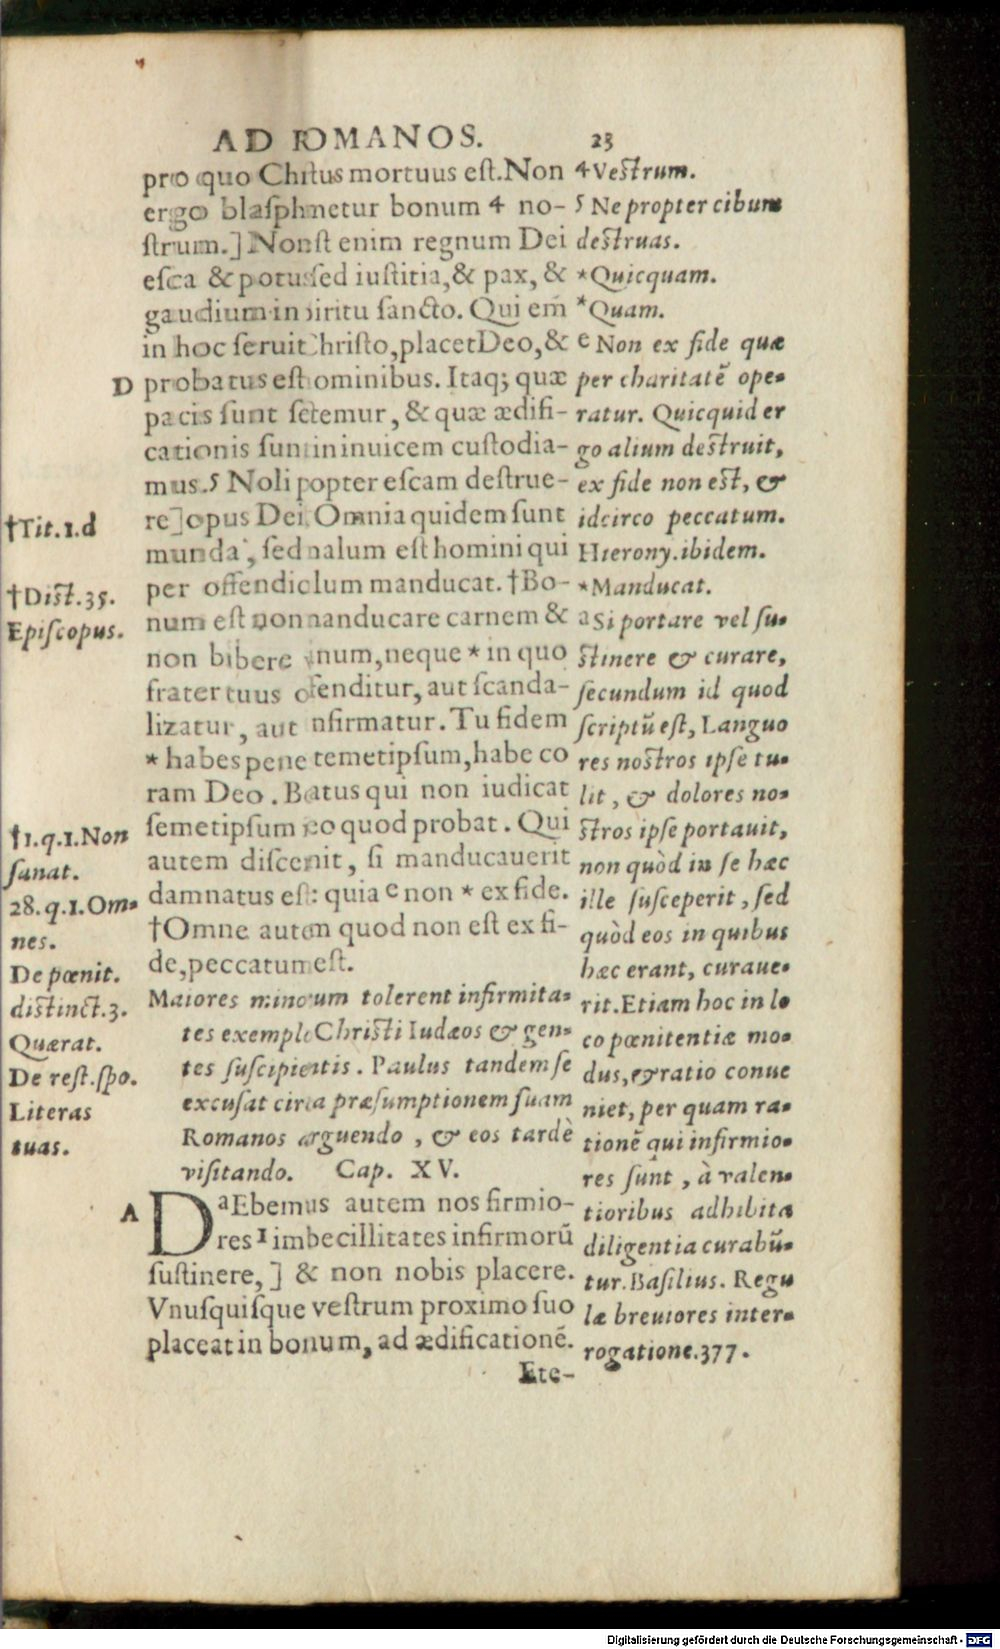 AD ROMANOS. 23
pro quo Christus mortuus est. Non
ergo blasphmetur bonum 4 no-
strum.] Non st enim regnum Dei
esca & potus sed iustitia, & pax, &
gaudium in siritu sancto. Qui em̄
in hoc seruit Christo, placet Deo, &
D probatus est ominibus. Itaq; quæ
pacis sunt sctemur, & quæ ædifi-
cationis sunt in inuicem custodia-
mus. 5 Noli popter escam destrue-
re] opus Dei. Omnia quidem sunt
munda, sed malum est homini qui
per offendiclum manducat. †Bo-
num est non manducare carnem &
non bibere inum, neque * in quo
frater tuus ofenditur, aut scanda-
lizatur, aut nfirmatur. Tu fidem
* habes pene temetipsum, habe co
ram Deo. Batus qui non iudicat
semetipsum eo quod probat. Qui
autem discenit, si manducauerit
damnatus est: quia e non * ex fide.
†Omne autem quod non est ex fi-
de, peccatum est.
Maiores minorum tolerent infirmita-
tes exemplo Christi Iudæos & gen-
tes suscipientis. Paulus tandem se
excusat circa præsumptionem suam
Romanos arguendo, & eos tardè
visitando. Cap. XV.
A DaEbemus autem nos firmio-
res 1 imbecillitates infirmorũ
sustinere,] & non nobis placere.
Vnusquisque vestrum proximo suo
placeat in bonum, ad ædificationẽ.
Ete-
4 Vestrum.
5 Ne propter cibum
destruas.
*Quicquam.
*Quam.
e Non ex fide quæ
per charitatẽ ope-
ratur. Quicquid er
go alium destruit,
ex fide non est, &
idcirco peccatum.
Hierony. ibidem.
*Manducat.
a Si portare vel su-
stinere & curare,
secundum id quod
scriptũ est, Languo
res nostros ipse tu-
lit, & dolores no-
stros ipse portauit,
non quòd in se hæc
ille susceperit, sed
quòd eos in quibus
hæc erant, curaue-
rit. Etiam hoc in lo
co pœnitentiæ mo-
dus, & ratio conue
niet, per quam ra-
tionẽ qui infirmio-
res sunt, à valen-
tioribus adhibita
diligentia curabũ-
tur. Basilius. Regu
læ breuiores inter-
rogatione. 377.
†Tit. 1. d
†Dist. 35.
Episcopus.
†1. q. 1. Non
sanat.
28. q. 1. Om-
nes.
De pœnit.
distinct. 3.
Quærat.
De rest. spo.
Literas
tuas.
Digitalisierung gefördert durch die Deutsche Forschungsgemeinschaft - DFG